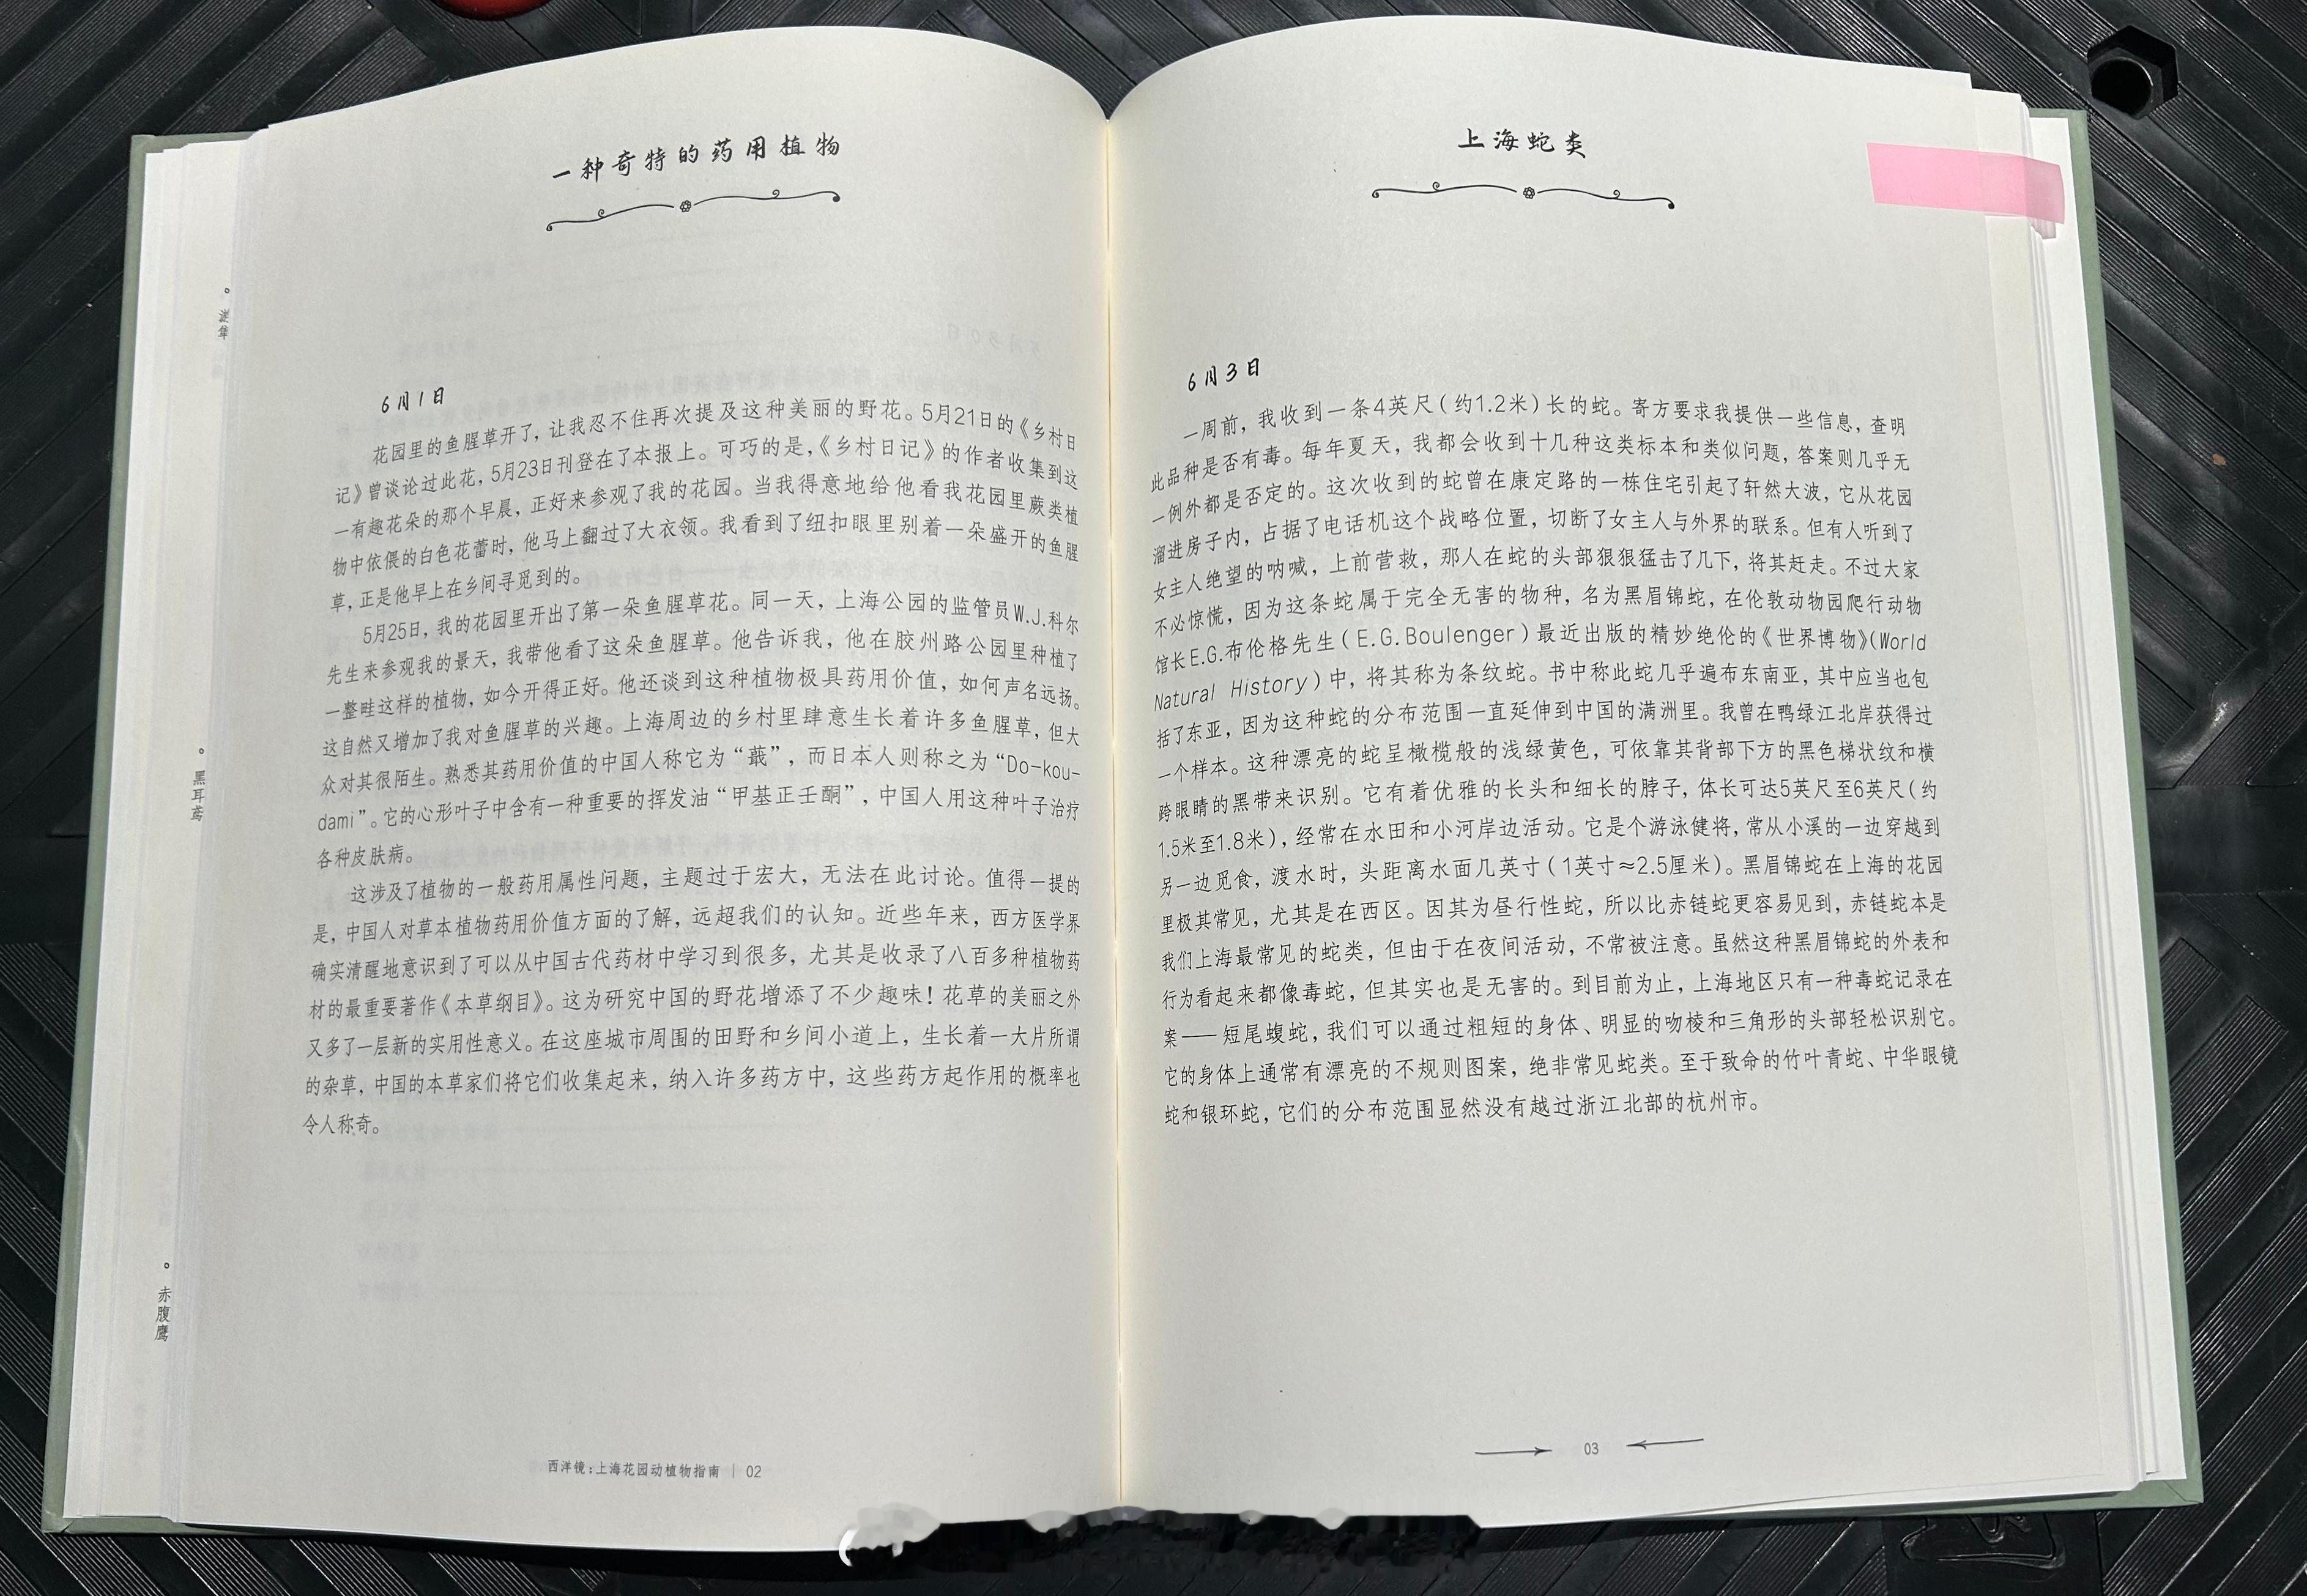 一种奇特的药用植物
6月1日
花园里的鱼腥草开了，让我忍不住再次提及这种美丽的野花。5月21日的《乡村日
记》曾谈论过此花，5月23日刊登在了本报上。可巧的是，《乡村日记》的作者收集到这
一有趣花朵的那个早晨，正好来参观了我的花园。当我得意地给他看我花园里蕨类植
物中依偎的白色花蕾时，他马上翻过了大衣领。我看到了纽扣眼里别着一朵盛开的鱼腥
草，正是他早上在乡间寻觅到的。
5月25日，我的花园里开出了第一朵鱼腥草花。同一天，上海公园的监管员W.J.科尔
先生来参观我的景天，我带他看了这朵鱼腥草。他告诉我，他在胶州路公园里种植了
一整畦这样的植物，如今开得正好。他还谈到这种植物极具药用价值，如何声名远扬。
这自然又增加了我对鱼腥草的兴趣。上海周边的乡村里肆意生长着许多鱼腥草，但大
众对其很陌生。熟悉其药用价值的中国人称它为“蕺”，而日本人则称之为“Do-kou-
dami”。它的心形叶子中含有一种重要的挥发油“甲基正壬酮”，中国人用这种叶子治疗
各种皮肤病。
这涉及了植物的一般药用属性问题，主题过于宏大，无法在此讨论。值得一提的
是，中国人对草本植物药用价值方面的了解，远超我们的认知。近些年来，西方医学界
确实清醒地意识到了可以从中国古代药材中学习到很多，尤其是收录了八百多种植物药
材的最重要著作《本草纲目》。这为研究中国的野花增添了不少趣味！花草的美丽之外
又多了一层新的实用性意义。在这座城市周围的田野和乡间小道上，生长着一大片所谓
的杂草，中国的本草家们将它们收集起来，纳入许多药方中，这些药方起作用的概率也
令人称奇。
西洋镜：上海花园动植物指南 | 02
黑耳鸢
赤腹鹰
上海蛇类
6月3日
一周前，我收到一条4英尺（约1.2米）长的蛇。寄方要求我提供一些信息，查明
此品种是否有毒。每年夏天，我都会收到十几种这类标本和类似问题，答案则几乎无
一例外都是否定的。这次收到的蛇曾在康定路的一栋住宅引起了轩然大波，它从花园
溜进房子内，占据了电话机这个战略位置，切断了女主人与外界的联系。但有人听到了
女主人绝望的呐喊，上前营救，那人在蛇的头部狠狠猛击了几下，将其赶走。不过大家
不必惊慌，因为这条蛇属于完全无害的物种，名为黑眉锦蛇，在伦敦动物园爬行动物
馆长E.G.布伦格先生（E.G.Boulenger）最近出版的精妙绝伦的《世界博物》（World
Natural History）中，将其称为条纹蛇。书中称此蛇几乎遍布东南亚，其中应当也包
括了东亚，因为这种蛇的分布范围一直延伸到中国的满洲里。我曾在鸭绿江北岸获得过
一个样本。这种漂亮的蛇呈橄榄般的浅绿黄色，可依靠其背部下方的黑色梯状纹和横
跨眼睛的黑带来识别。它有着优雅的长头和细长的脖子，体长可达5英尺至6英尺（约
1.5米至1.8米），经常在水田和小河岸边活动。它是个游泳健将，常从小溪的一边穿越到
另一边觅食，渡水时，头距离水面几英寸（1英寸≈2.5厘米）。黑眉锦蛇在上海的花园
里极其常见，尤其是在西区。因其为昼行性蛇，所以比赤链蛇更容易见到，赤链蛇本是
我们上海最常见的蛇类，但由于在夜间活动，不常被注意。虽然这种黑眉锦蛇的外表和
行为看起来都像毒蛇，但其实也是无害的。到目前为止，上海地区只有一种毒蛇记录在
案——短尾蝮蛇，我们可以通过粗短的身体、明显的吻棱和三角形的头部轻松识别它。
它的身体上通常有漂亮的不规则图案，绝非常见蛇类。至于致命的竹叶青蛇、中华眼镜
蛇和银环蛇，它们的分布范围显然没有越过浙江北部的杭州市。
03